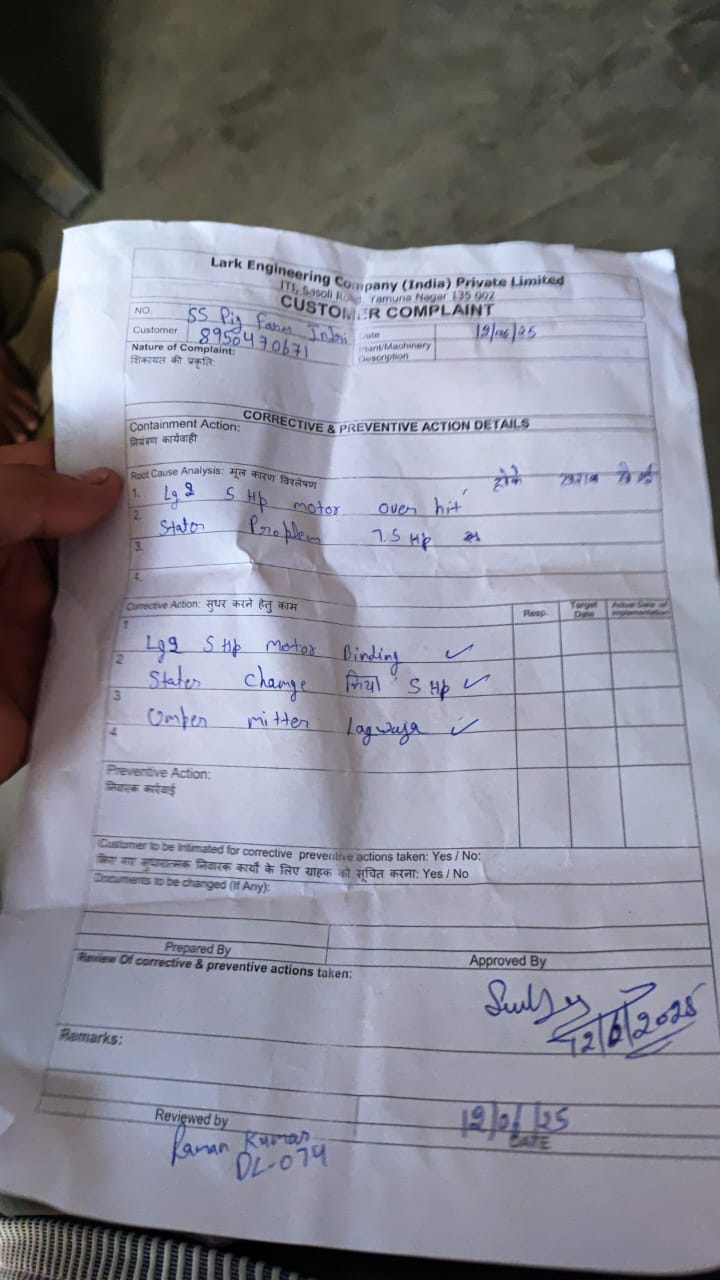 Lark Engineering Company (India) Private Limited
ITI, Sasoli Road, Yamuna Nagar 135 002
CUSTOMER COMPLAINT
NO. SS Pig Farm Indri
Customer 8950470671
Date 12/06/25
Plant/Machinery Description
Nature of Complaint:
शिकायत की प्रकृति:
CORRECTIVE & PREVENTIVE ACTION DETAILS
Containment Action:
नियंत्रण कार्यवाही
Root Cause Analysis: मूल कारण विश्लेषण
1. Lg2 5 Hp motor over hit होके खराब हो गई
2. Stator Problem 7.5 Hp
3.
4.
Corrective Action: सुधर करने हेतु काम
Resp. Target Date Actual Date of Implementation
1 Lg2 5 Hp motor Binding ✓
2 States change किया 5 Hp ✓
3 Omper mitter Lagwaya ✓
4
Preventive Action:
निवारक कार्रवाई
Customer to be Intimated for corrective preventive actions taken: Yes / No:
किए गए सुधारात्मक निवारक कार्यों के लिए ग्राहक को सूचित करना: Yes / No
Documents to be changed (If Any):
Prepared By
Approved By
Review Of corrective & preventive actions taken:
12/6/2025
Remarks:
Reviewed by
Raman Kumar
DL-074
12/6/25
DATE